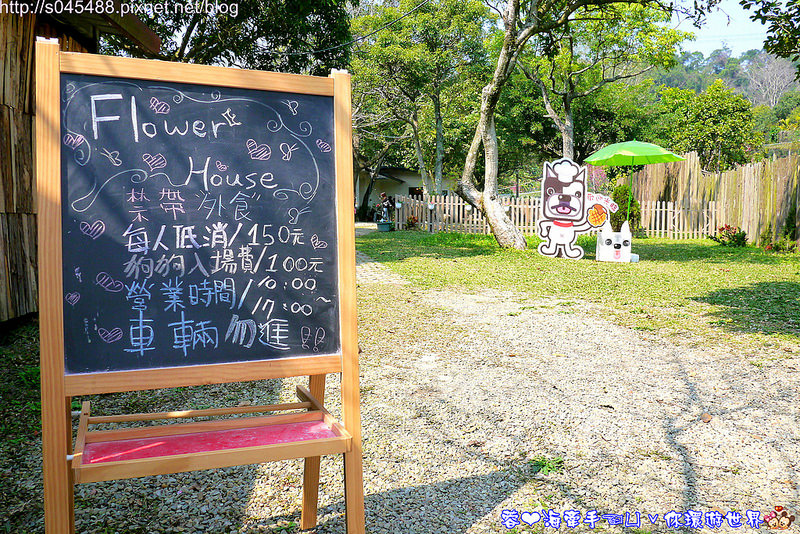 http://s045488.pixnet.net/blog
Flower
House
禁帶"外食"
每人低消/150元
狗狗入場費/100元
營業時間/10:00~
17:00
車輛勿進!!
你環遊世界